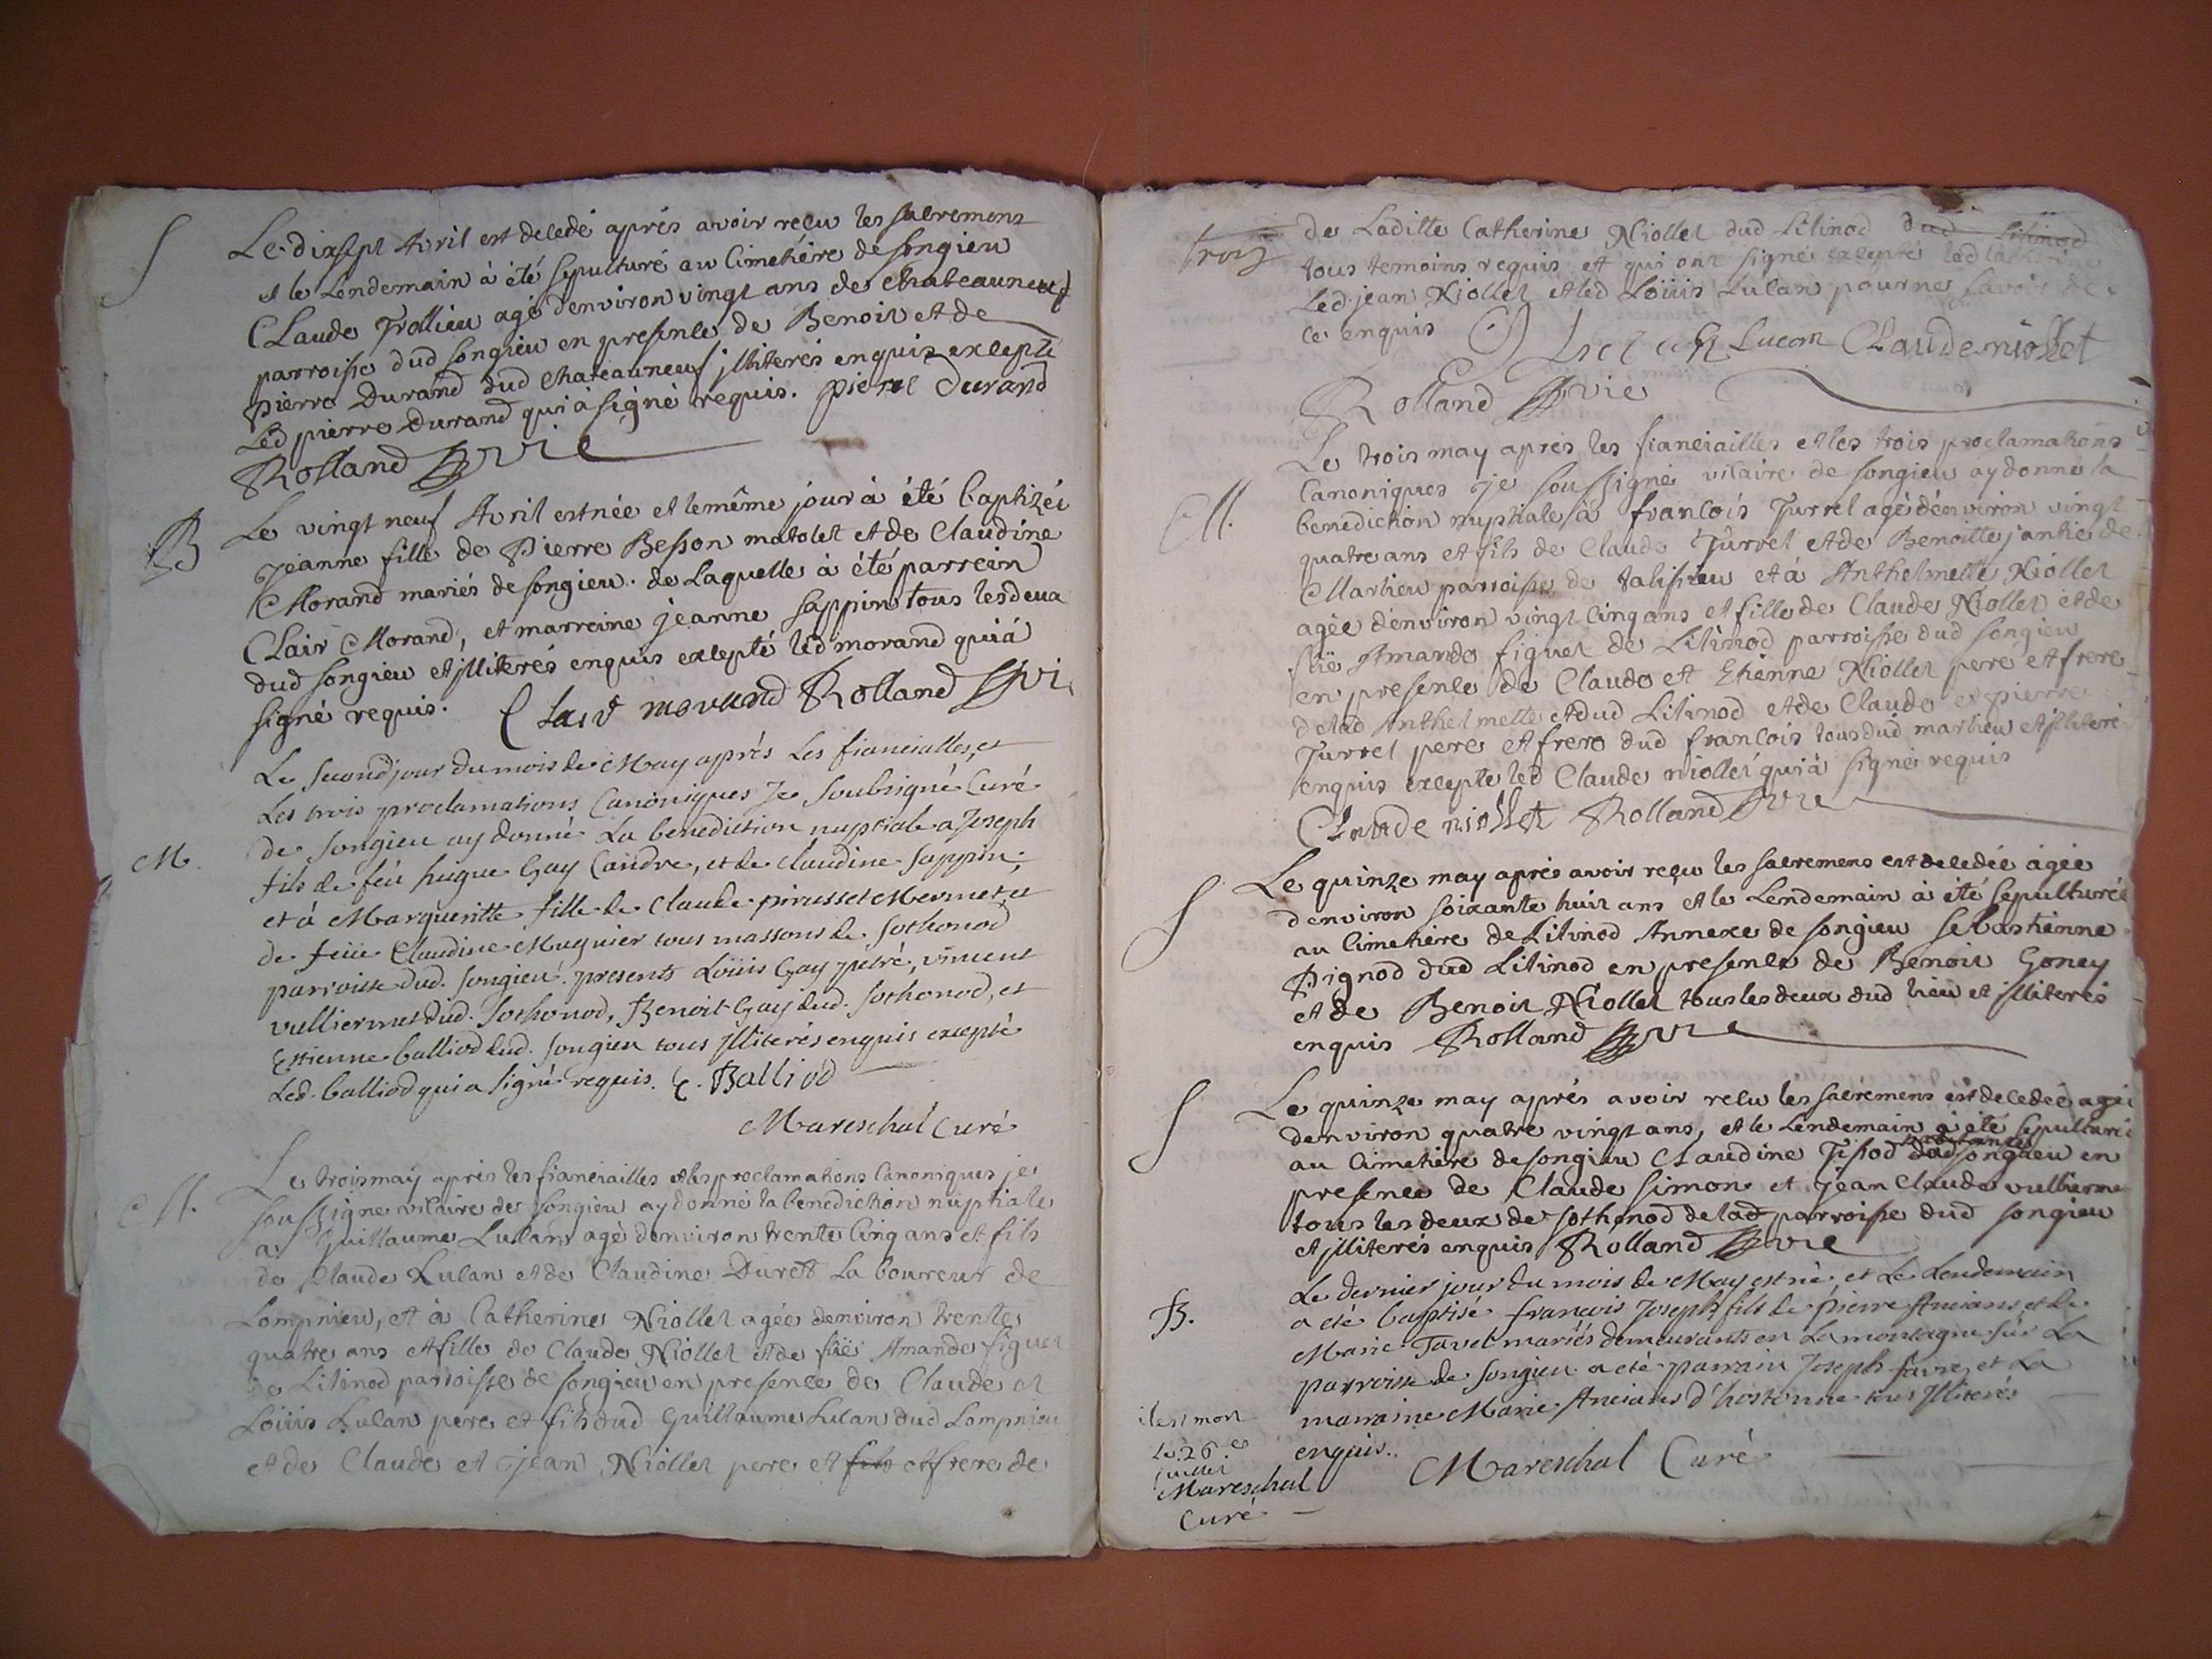 S
Le dixsept Avril est decedé aprés avoir reçu les sacremens
et le Lendemain à été sepulturé au Cimetiére de songieu
CLaude Trollieu agé denviron vingt ans de Chateauneuf
parroisse dud songieu en presence de Benoit et de
pierre Durand dud chateauneuf jlliterés enquis excepté
Led pierre Durand qui à signé requis. pierre Durand
Rolland vic
B
Le vingt neuf Avril est née et le même jour à été baptizée
Jeanne fille de Pierre Besson matolet et de Claudine
Morand mariés de songieu. de Laquelle à été parrein
CLair Morand, et marreine jeanne sappin tous les deux
dud songieu et jlliterés enquis excepté led morand qui à
signé requis. Clair morand Rolland vic
M.
Le second jour du mois de May aprés Les fiancialles, et
Les trois proclamations Canoniques Je Soubsigné Curé
de songieu ay donné La benediction nuptiale a Joseph
fils de feu hugue Gay Candre, et de Claudine Sappin,
et à Margueritte fille de Claude pirusset Mermet, et
de feüe Claudine Mugnier tous massons de Sothonod
parroisse dud. songieu. presents Loüis Gay petré, vincent
vulliermet dud. Sothonod, Benoit Gay dud. Sothonod, et
Estienne balliod dud. songieu tous Jlliterés enquis excepté
Led. balliod qui a signé requis. E. Balliod
Mareschal Curé
M.
Le trois may aprés les fianciailles et les proclamations Canoniques je
soussigné vicaire de songieu ay donné la benediction nuptiale
a Guillaume Lulan agé denviron trente cinq ans et fils
de Claude Lulan et de Claudine Duret La boureur de
Lompnieu, et à Catherine Niollet agée denviron trente
quatre ans et fille de Claude Niollet et de füe Amande figuet
de Litinod parroisse de songieu en presence de Claude et
Loüis Lulan pere et fils dud Guillaume Lulan dud Lompnieu
et de Claude et Jean Niollet pere et fils et frere de
trois
de Laditte Catherine Niollet dud Litinod dud Litinod
tous temoins requis et qui ont signé excepté lad Catherine
Led. jean Niollet et led Loüis Lulan pour ne savoir de
ce enquis Lucom Claude niollet
Rolland vic
M.
Le trois may aprés les fianciailles et les trois proclamations
Canoniques je soussigné vicaire de songieu ay donné la
benediction nuptiale à francois Turrel agé dénviron vingt
quatre ans et fils de Claude Turrel et de Benoitte jantie de
Marlieu parroisse de talissieu et à Anthelmette Niollet
agée dénviron vingt cinq ans et fille de Claude Niollet et de
füe Amande figuet de Litinod parroisse dud songieu
en presence de Claude et Etienne Niollet pere et frere
delad Anthelmette et dud Litinod et de Claude et pierre
Turrel pere et frere dud francois tous dud marlieu et jlliteré
enquis excepte led Claude niollet qui à signé requis
Claude niollet Rolland vic
S
Le quinze may aprés avoir reçu les sacremens est decedée agée
denviron soixante huit ans et le Lendemain à été sepulturée
au Cimetiére de Litinod Annexe de songieu sebastienne
Pignod dud Litinod en presence de Benoit Goney
et de Benoit Niollet tous les deux dud lieu et jlliterés
enquis Rolland vic
S
Le quinze may aprés avoir recu les sacrémens est decedée agée
denviron quatre vingt ans, et le Lendemain à été sepulturée
au Cimetiére de songieu Claudine Tissod dud songieu en
presence de Claude simon et Jean Claude vullierme
tous les deux de sothonod delad parroisse dud songieu
et jlliterés enquis Rolland vic
B.
Le dernier jour du mois de May est né et Le Lendemain
a été baptisé francois Joseph fils de pierre Ancians et de
Marie Tavel mariés demeurants en La montagne sur La
parroisse de songieu a eté parrain Joseph favre, et La
marraine Marie Ancians d'hostonne tous Jlliterés
enquis. Mareschal Curé
il est mort
Le 26e
juillet
Mareschal
Curé